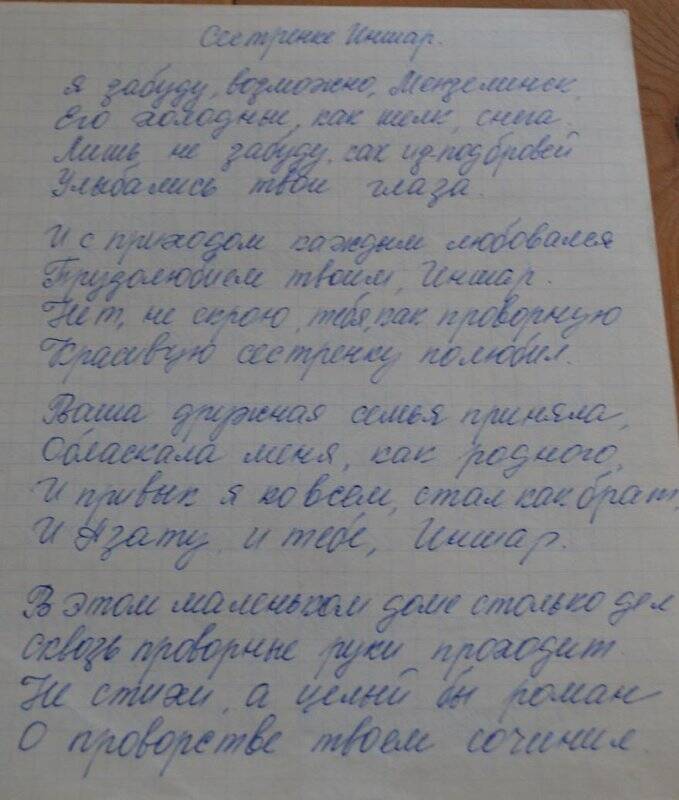 Сестренке Иншар.
Я забуду, возможно, Мензелинск,
Его холодные, как шелк, снега.
Лишь не забуду, как из-под бровей
Улыбались твои глаза.
И с приходом каждым любовался
Трудолюбием твоим, Иншар.
Нет, не скрою, тебя, как проворную
Красивую сестренку полюбил.
Ваша дружная семья приняла,
Обласкала меня, как родного,
И привык я ко всем, стал как брат,
И Азату, и тебе, Иншар.
В этом маленьком доме столько дел
Сквозь проворные руки проходит.
Не стихи, а целый бы роман
О проворстве твоем сочинил.